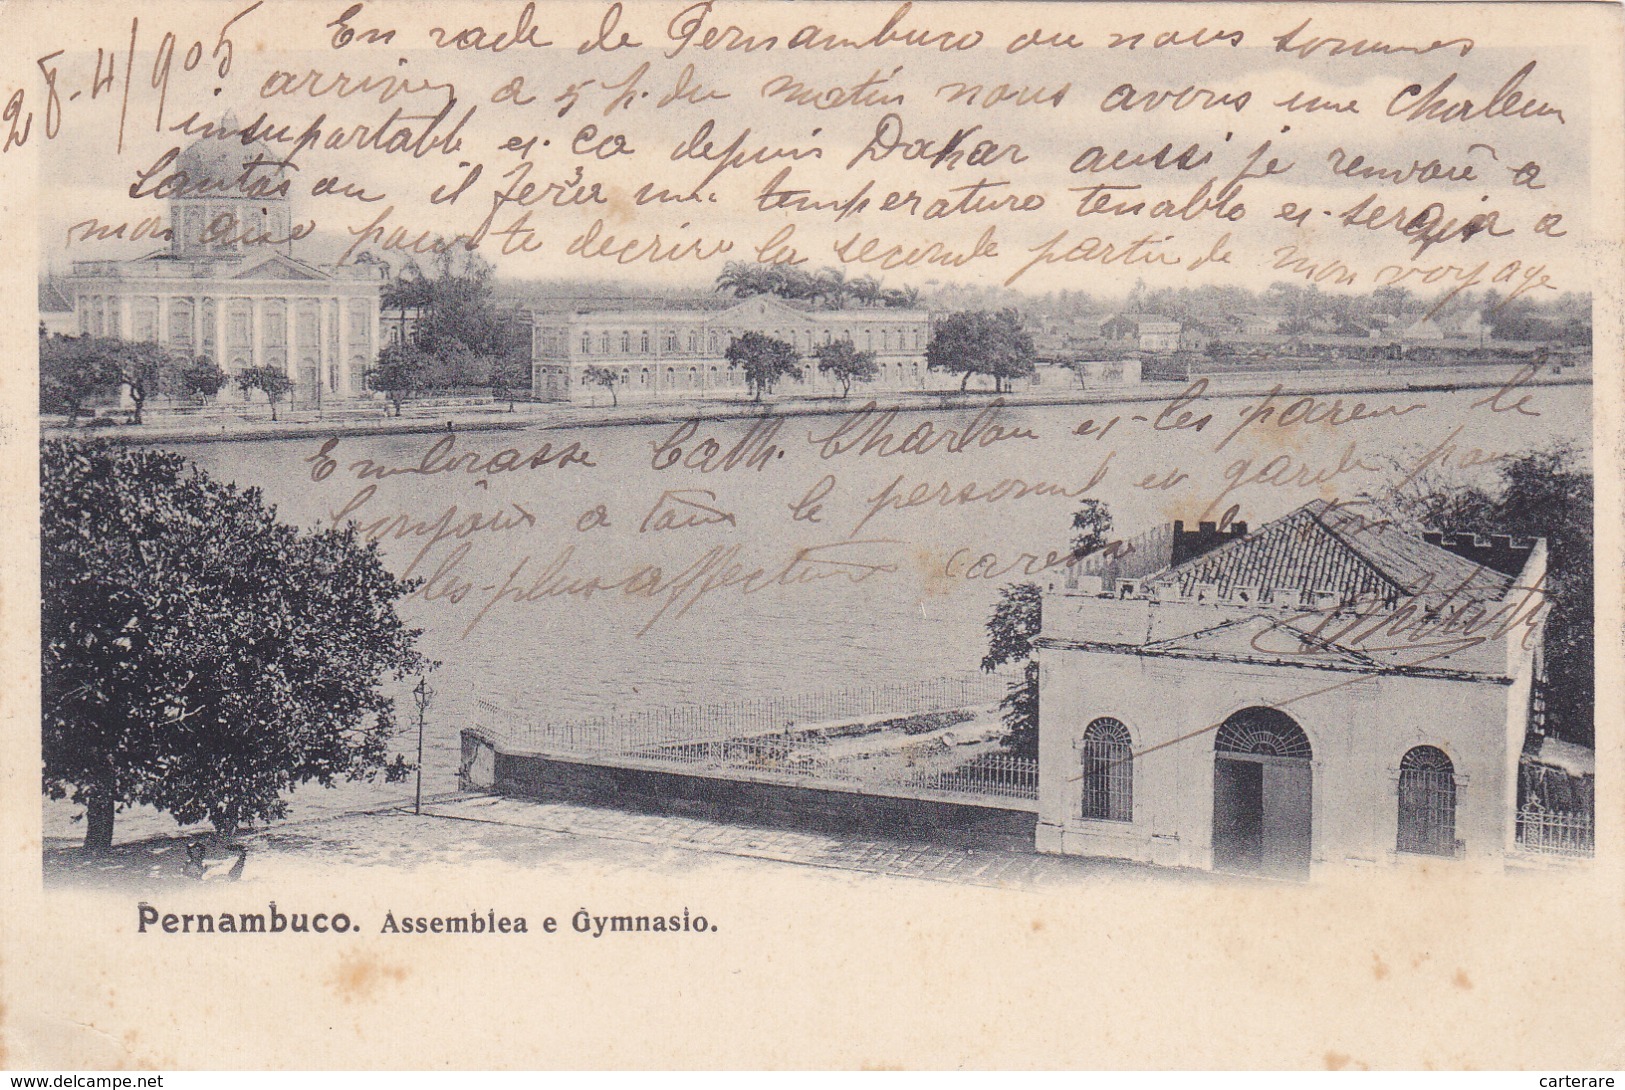 28-4/905
En rade de Pernambuco ou nous sommes
arrivez a 5 h. du matin nous avons une chaleur
insuportable et ca depuis Dakar aussi je renvoie a
Santos ou il fera une temperature tenable et sera a
mon aise pour te decrire la seconde partie de mon voyage
Embrasse Cath. Charlou et les parents le
bonjour a tous le personnel et garde pour toi
les plus affectueux caresses de ton
Pernambuco. Assemblea e Gymnasio.
delcampe.net
carterare